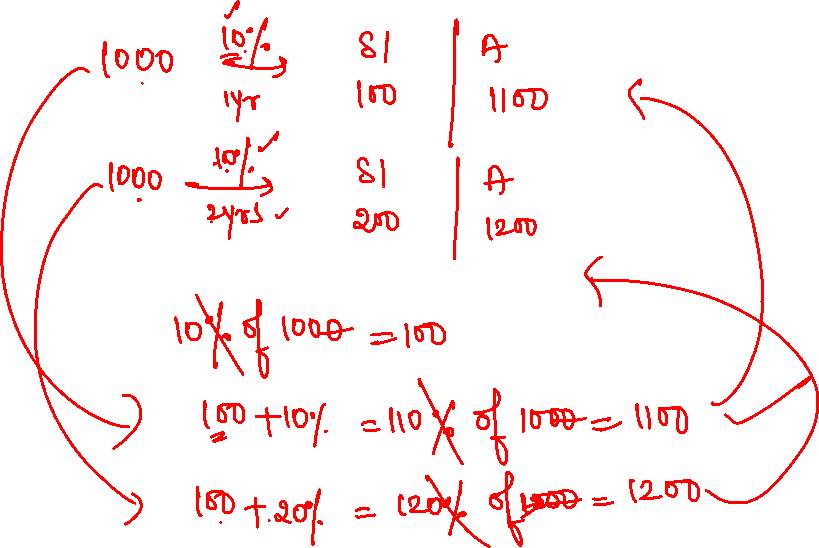 1000 10% SI | A
1yr 100 | 1100
1000 10% SI | A
2yrs 200 | 1200
10% of 1000 = 100
100 + 10% = 110% of 1000 = 1100
100 + 20% = 120% of 1000 = 1200